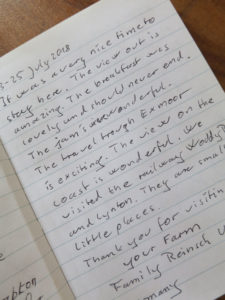 3-25 July 2018
It was a very nice time to
stay here. The view out is
amazing. The breakfast was
lovely and should never end.
The jam's wonderful.
The travel trough Exmoor
is exciting. The view on the
coast is wonderful. We
visited the railway Woody
and Lynton. They are small
little places.
Thank you for visiting
your Farm
Family Reinsch
many